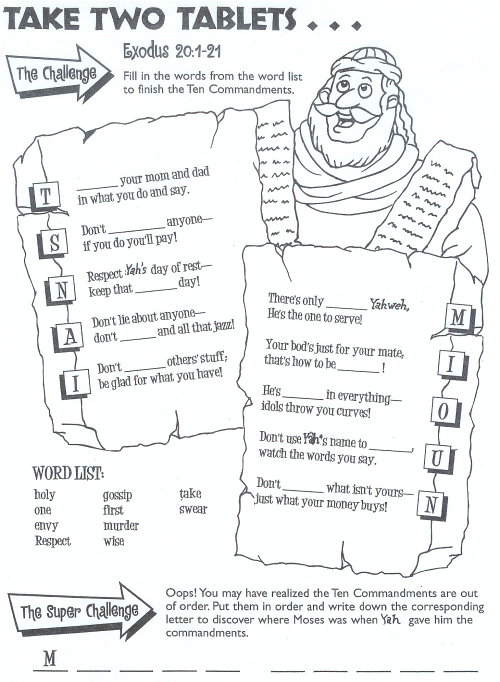 TAKE TWO TABLETS . . .
Exodus 20:1-21
The Challenge
Fill in the words from the word list
to finish the Ten Commandments.
T
______ your mom and dad
in what you do and say.
S
Don't ________ anyone—
if you do you'll pay!
N
Respect Yah's day of rest—
keep that ______ day!
A
Don't lie about anyone—
don't ______ and all that jazz!
I
Don't ______ others' stuff;
be glad for what you have!
M
There's only ______ Yahweh,
He's the one to serve!
I
Your bod's just for your mate,
that's how to be ______ !
O
He's ______ in everything—
idols throw you curves!
U
Don't use Yah's name to ______,
watch the words you say.
N
Don't ______ what isn't yours—
just what your money buys!
WORD LIST:
holy gossip take
one first swear
envy murder
Respect wise
The Super Challenge
Oops! You may have realized the Ten Commandments are out
of order. Put them in order and write down the corresponding
letter to discover where Moses was when Yah gave him the
commandments.
M ____ ____ ____ ____ ____ ____ ____ ____ ____